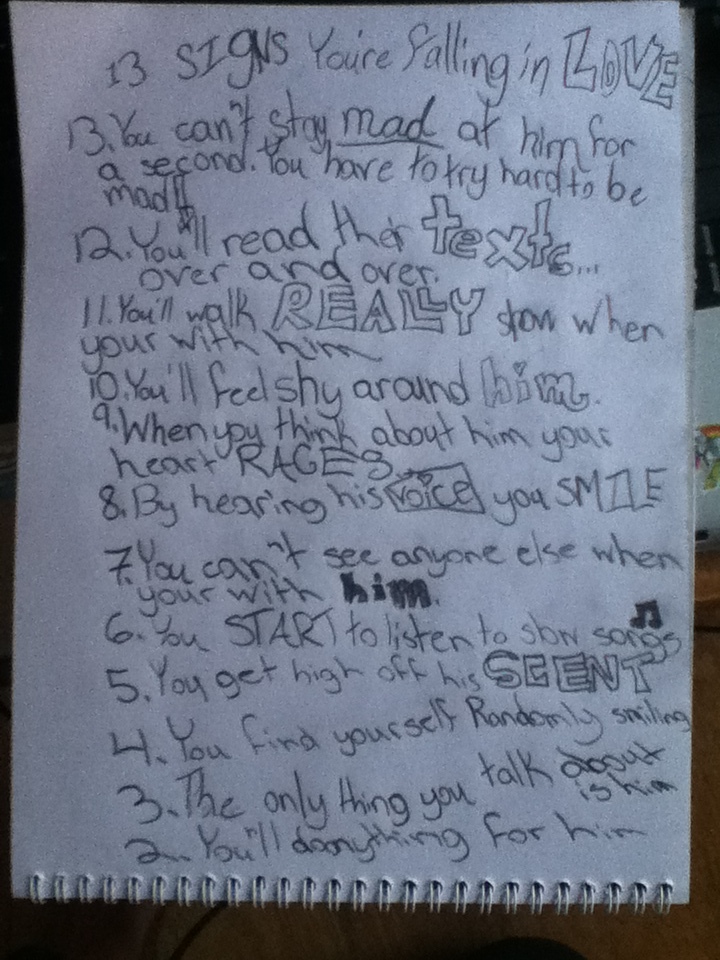 13 SIGNS You're falling in LOVE
13. You can't stay mad at him for
a second. You have to try hard to be
mad!!
12. You'll read ther texts...
over and over.
11. You'll walk REALLY slow when
your with him
10. You'll feel shy around him.
9. When you think about him your
heart RACES
8. By hearing his voice you SMILE
7. You can't see anyone else when
your with him.
6. You START to listen to slow songs
5. You get high off his SCENT
4. You find yourself Randomly smiling
3. The only thing you talk about
is him
2. You'll do anything for him